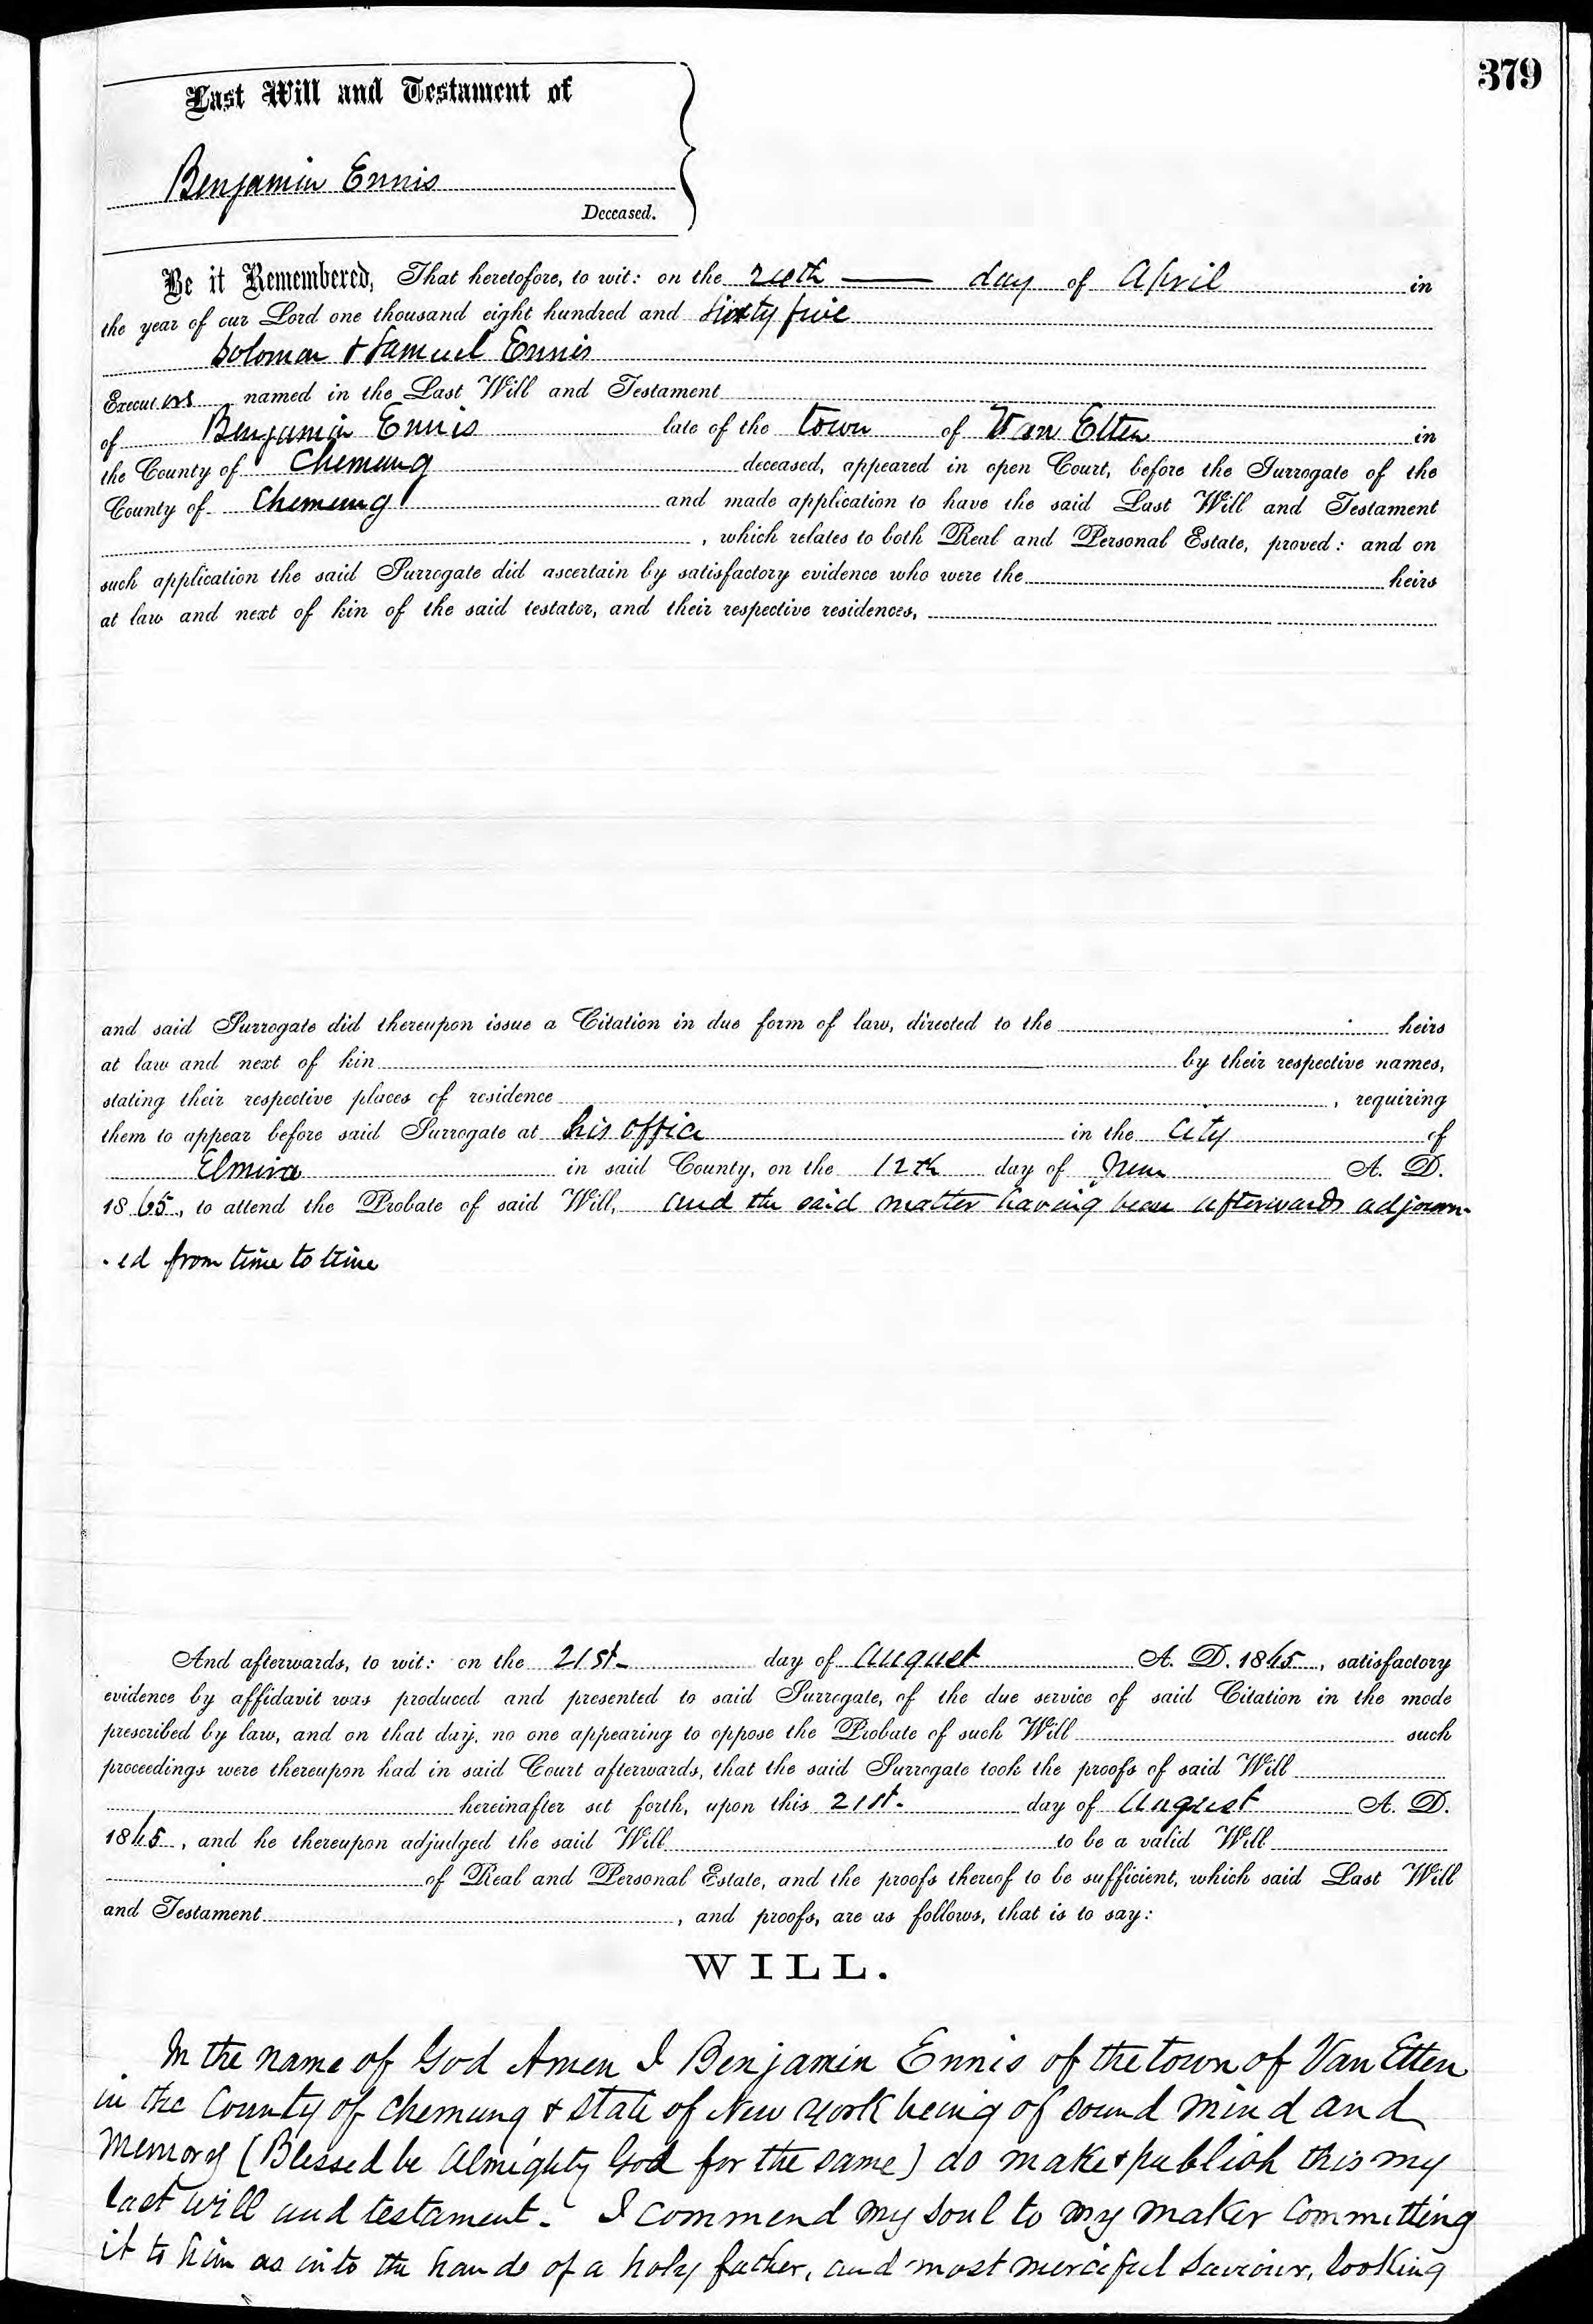 379
Last Will and Testament of
Benjamin Ennis
Deceased.
Be it Remembered, That heretofore, to wit: on the day of April in
the year of our Lord one thousand eight hundred and Sixty five
Solomon & Samuel Ennis
Executors named in the Last Will and Testament
of Benjamin Ennis late of the town of Van Etten in
the County of Chemung deceased, appeared in open Court, before the Surrogate of the
County of Chemung and made application to have the said Last Will and Testament
, which relates to both Real and Personal Estate, proved: and on
such application the said Surrogate did ascertain by satisfactory evidence who were the heirs
at law and next of kin of the said testator, and their respective residences,
and said Surrogate did thereupon issue a Citation in due form of law, directed to the heirs
at law and next of kin by their respective names,
stating their respective places of residence , requiring
them to appear before said Surrogate at his office in the City of
Elmira in said County, on the 12th day of June A. D.
1865, to attend the Probate of said Will, and the said matter having been afterwards adjourn-
-ed from time to time
And afterwards, to wit: on the 21st- day of August A. D. 1865, satisfactory
evidence by affidavit was produced and presented to said Surrogate, of the due service of said Citation in the mode
prescribed by law, and on that day, no one appearing to oppose the Probate of such Will such
proceedings were thereupon had in said Court afterwards, that the said Surrogate took the proofs of said Will
hereinafter set forth, upon this 21st- day of August A. D.
1865, and he thereupon adjudged the said Will to be a valid Will
of Real and Personal Estate, and the proofs thereof to be sufficient, which said Last Will
and Testament , and proofs, are as follows, that is to say:
WILL.
In the name of God Amen I Benjamin Ennis of the town of Van Etten
in the County of Chemung & state of New York being of sound mind and
memory (Blessed be Almighty God for the same) do make & publish this my
last will and testament. I commend my soul to my maker committing
it to him as into the hands of a holy father, and most merciful Saviour, looking